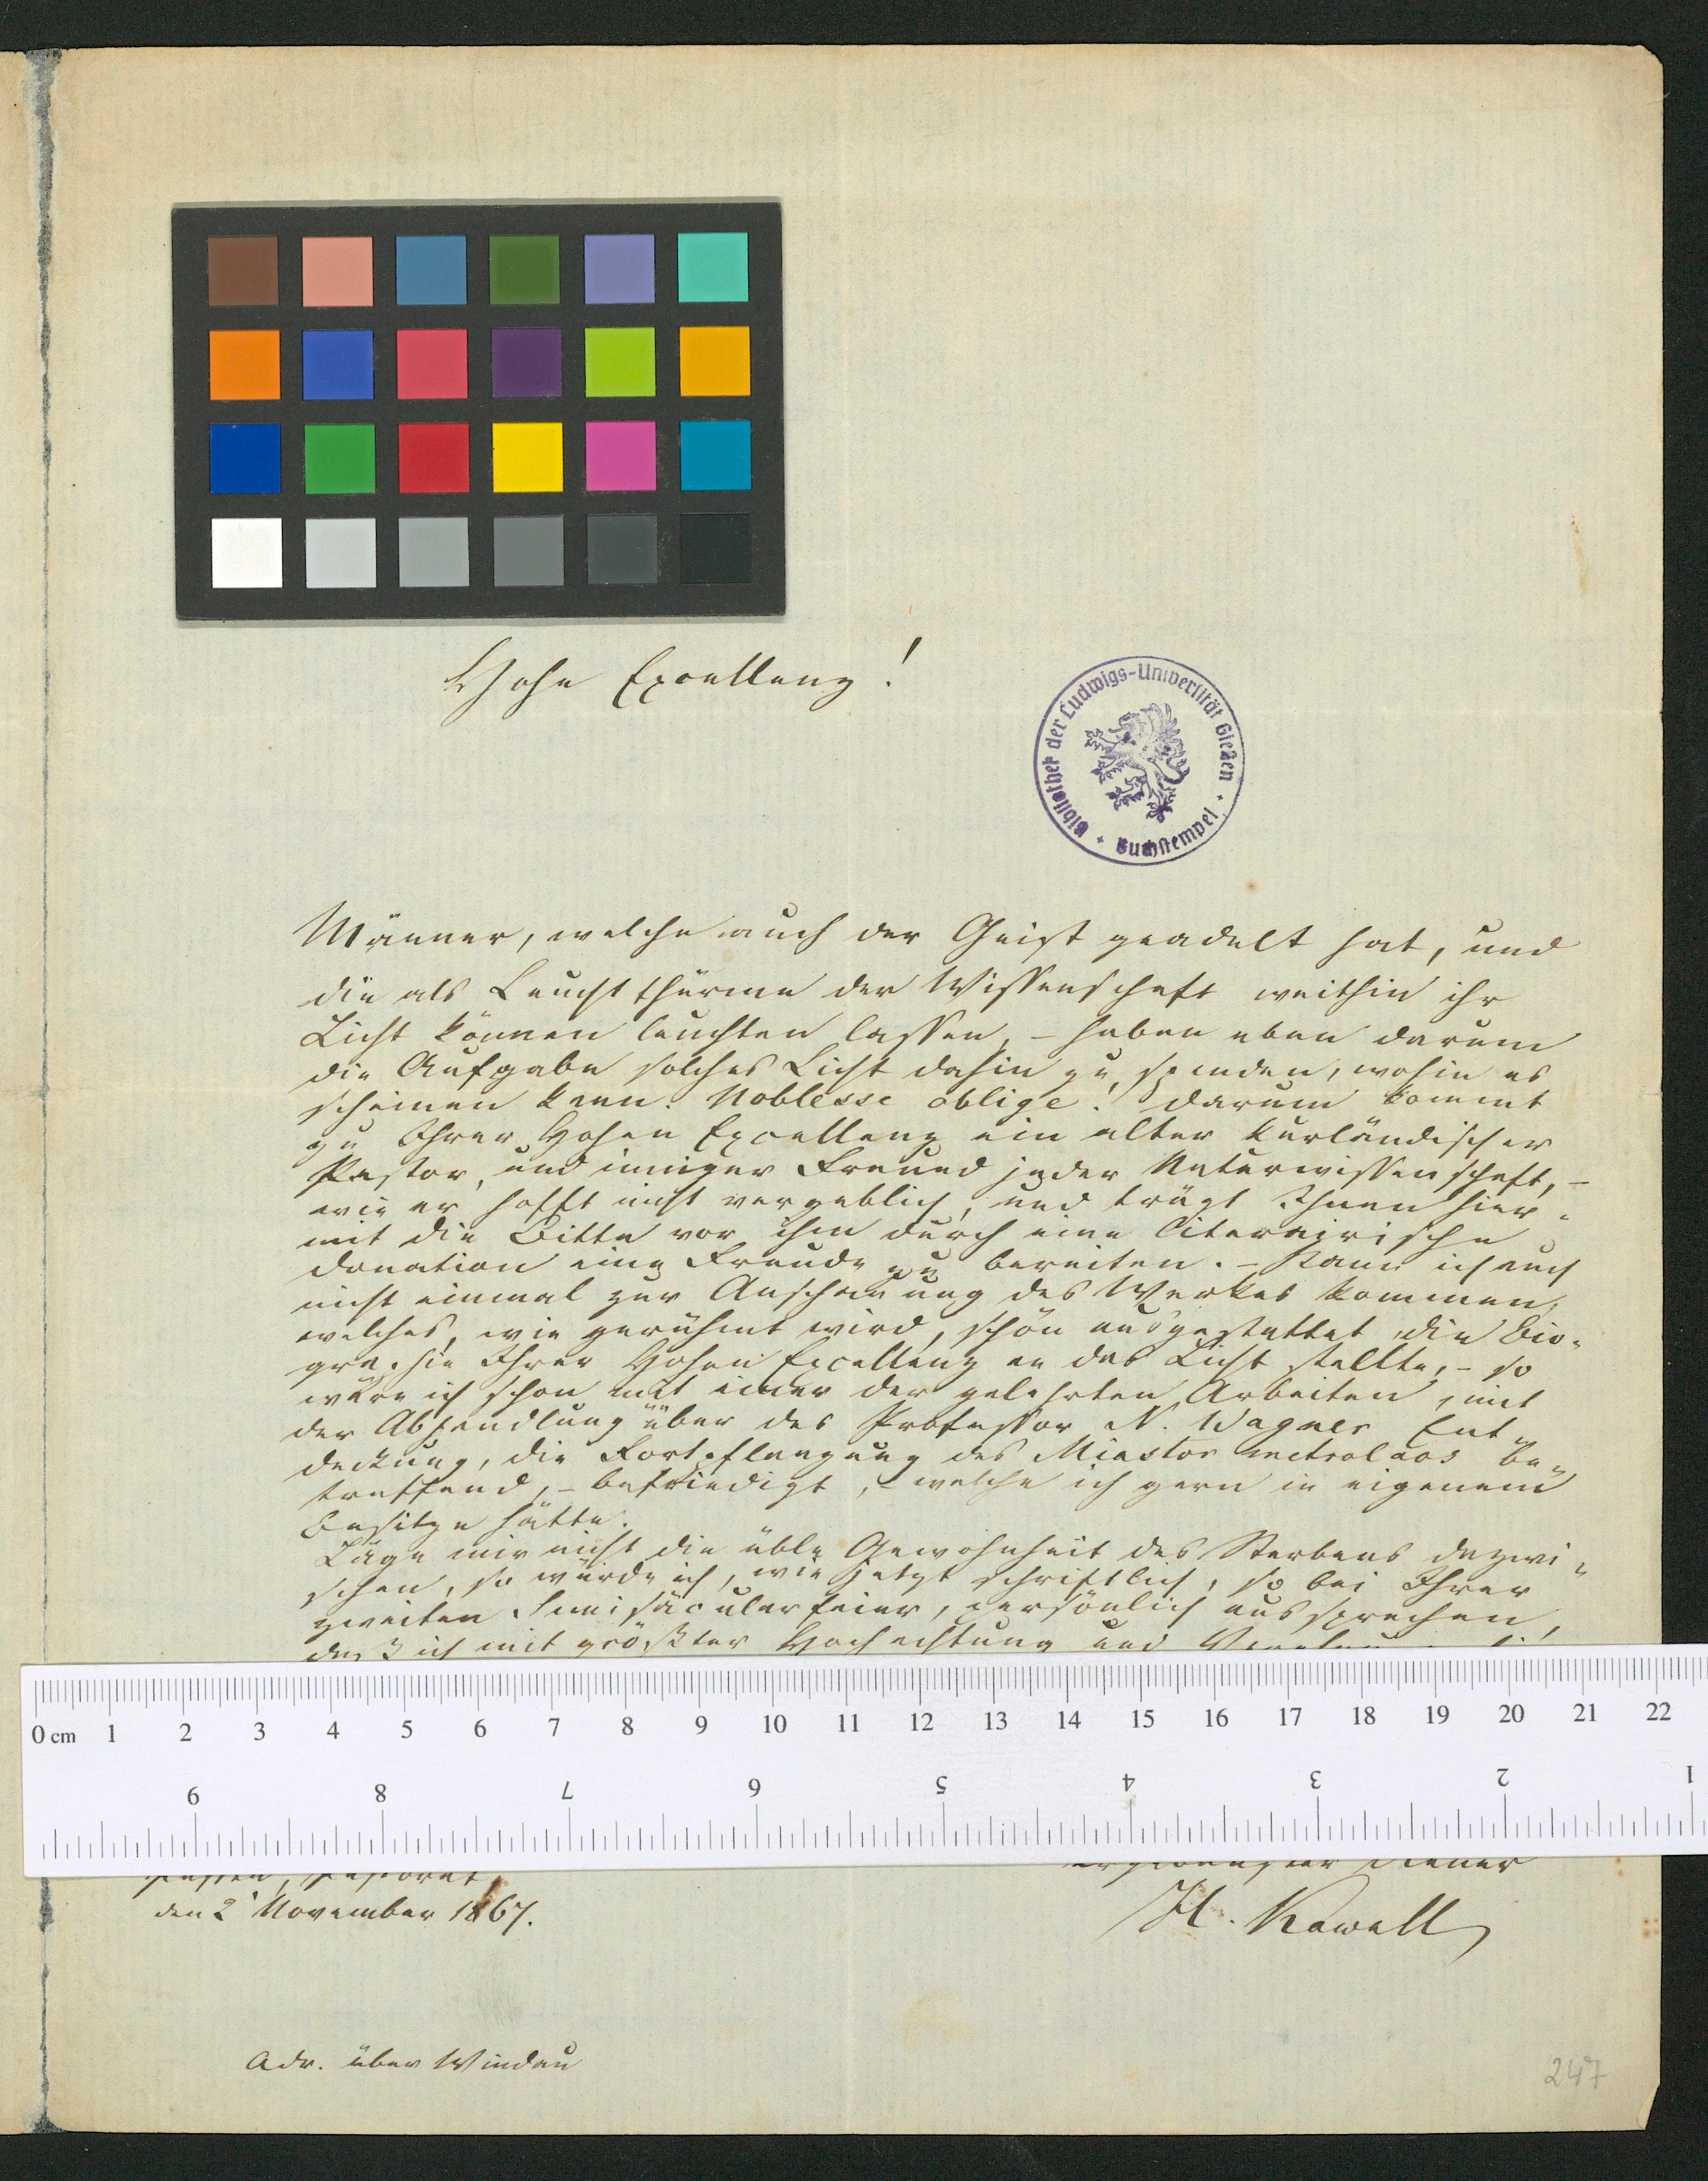 Hohe Excellenz!
Bibliothek der Ludwigs-Universität Gießen + Buchstempel +
Männer, welche auch der Geist geadelt hat, und
die als Leuchtthürme der Wissenschaft weithin ihr
Licht können leuchten lassen, – haben eben darum
die Aufgabe solches Licht dahin zu spenden, wohin es
scheinen kann. Noblesse oblige! Darum kommt
zu Ihrer Hohen Excellenz ein alter kurländischer
Pastor, und inniger Freund jeder Naturwissenschaft, –
wie er hofft nicht vergeblich, und trägt Ihnen hier-
mit die Bitte vor ihm durch eine literairische
Donation eine Freude zu bereiten. – Kann ich auch
nicht einmal zur Anschauung des Werkes kommen,
welches, wie gerühmt wird, schön ausgestattet die Bio-
graphie Ihrer Hohen Excellenz an das Licht stellte, – so
wäre ich schon mit einer der gelehrten Arbeiten, mit
der Abhandlung über des Professor N. Wagner Ent-
deckung, die Fortpflanzung des Miastor metroloas be-
treffend, – befriedigt, welche ich gern in eigenem
Besitze hätte.
Läge mir nicht die üble Gewohnheit des Sterbens dazwi-
schen, so würde ich, wie jetzt schriftlich, so bei Ihrer
zweiten Semisäcularfeier, persönlich aussprechen,
daß ich mit größter Hochachtung und
0 cm 1 2 3 4 5 6 7 8 9 10 11 12 13 14 15 16 17 18 19 20 21 22
9 8 7 6 5 4 3 2 1
Pastorat,
Diener
den 2 November 1867.
H. Kawall
Adr. über Windau
247